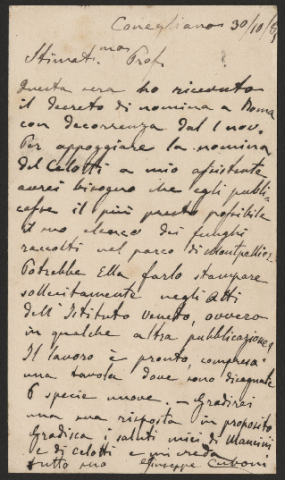 Conegliano 30/10/
Stimat.mo Prof.
Questa sera ho ricevuto
il decreto di nomina a Roma
con decorrenza dal 1 nov.
Per appoggiare la nomina
del Celotti a mio assistente
avrei bisogno che egli pubbli-
casse il più presto possibile
il suo elenco dei funghi
raccolti nel parco di Montpellier.
Potrebbe Ella farlo stampare
sollecitamente negli Atti
dell'Istituto Veneto, ovvero
in qualche altra pubblicazione?
Il lavoro è pronto, compresa
una tavola dove sono disegnate
6 specie nuove. – Gradirei
una sua risposta in proposito
Gradisca i saluti miei di Mancini
e di Celotti e mi creda
tutto suo Giuseppe Cuboni